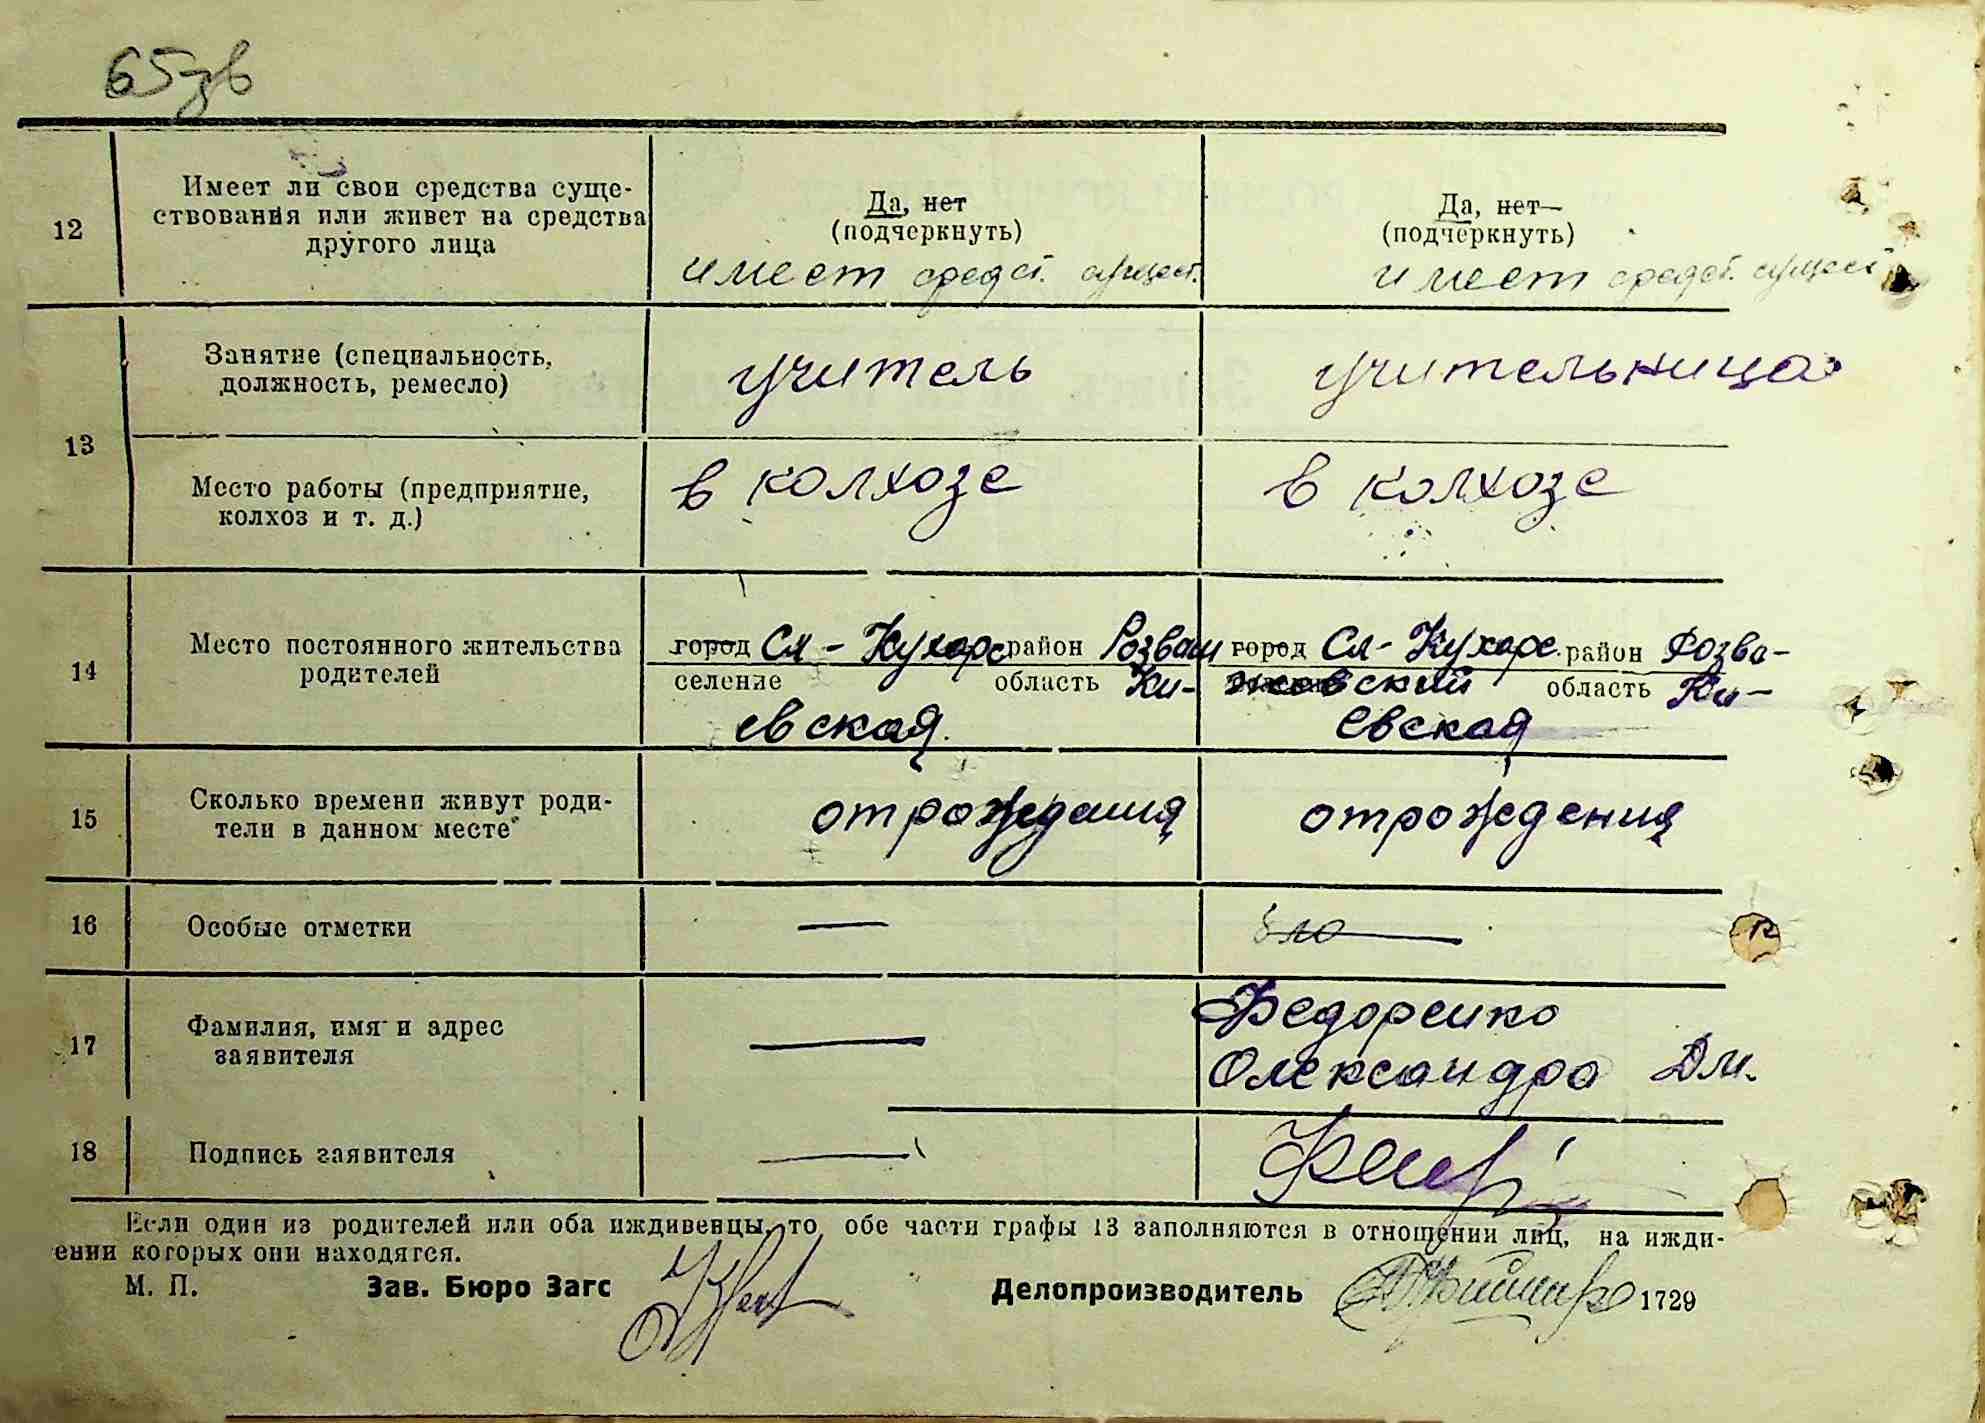 65зв
12
Имеет ли свои средства суще-
ствования или живет на средства
другого лица
Да, нет
(подчеркнуть)
имеет средст. сущест.
Да, нет
(подчеркнуть)
имеет средст. сущест
13
Занятие (специальность,
должность, ремесло)
учитель
учительница
Место работы (предприятие,
колхоз и т. д.)
в колхозе
в колхозе
14
Место постоянного жительства
родителей
город Сл - Кухарс район Розваж
селение область Ки-
евская.
город Сл - Кухарс. район Розва-
жевский область Ки-
евская
15
Сколько времени живут роди-
тели в данном месте
от рождения
от рождения
16
Особые отметки
—
17
Фамилия, имя и адрес
заявителя
—
Федоренко
Олександра Дм.
18
Подпись заявителя
—
Если один из родителей или оба иждивенцы, то обе части графы 13 заполняются в отношении лиц, на ижди-
ении которых они находятся.
М. П. Зав. Бюро Загс Делопроизводитель 1729